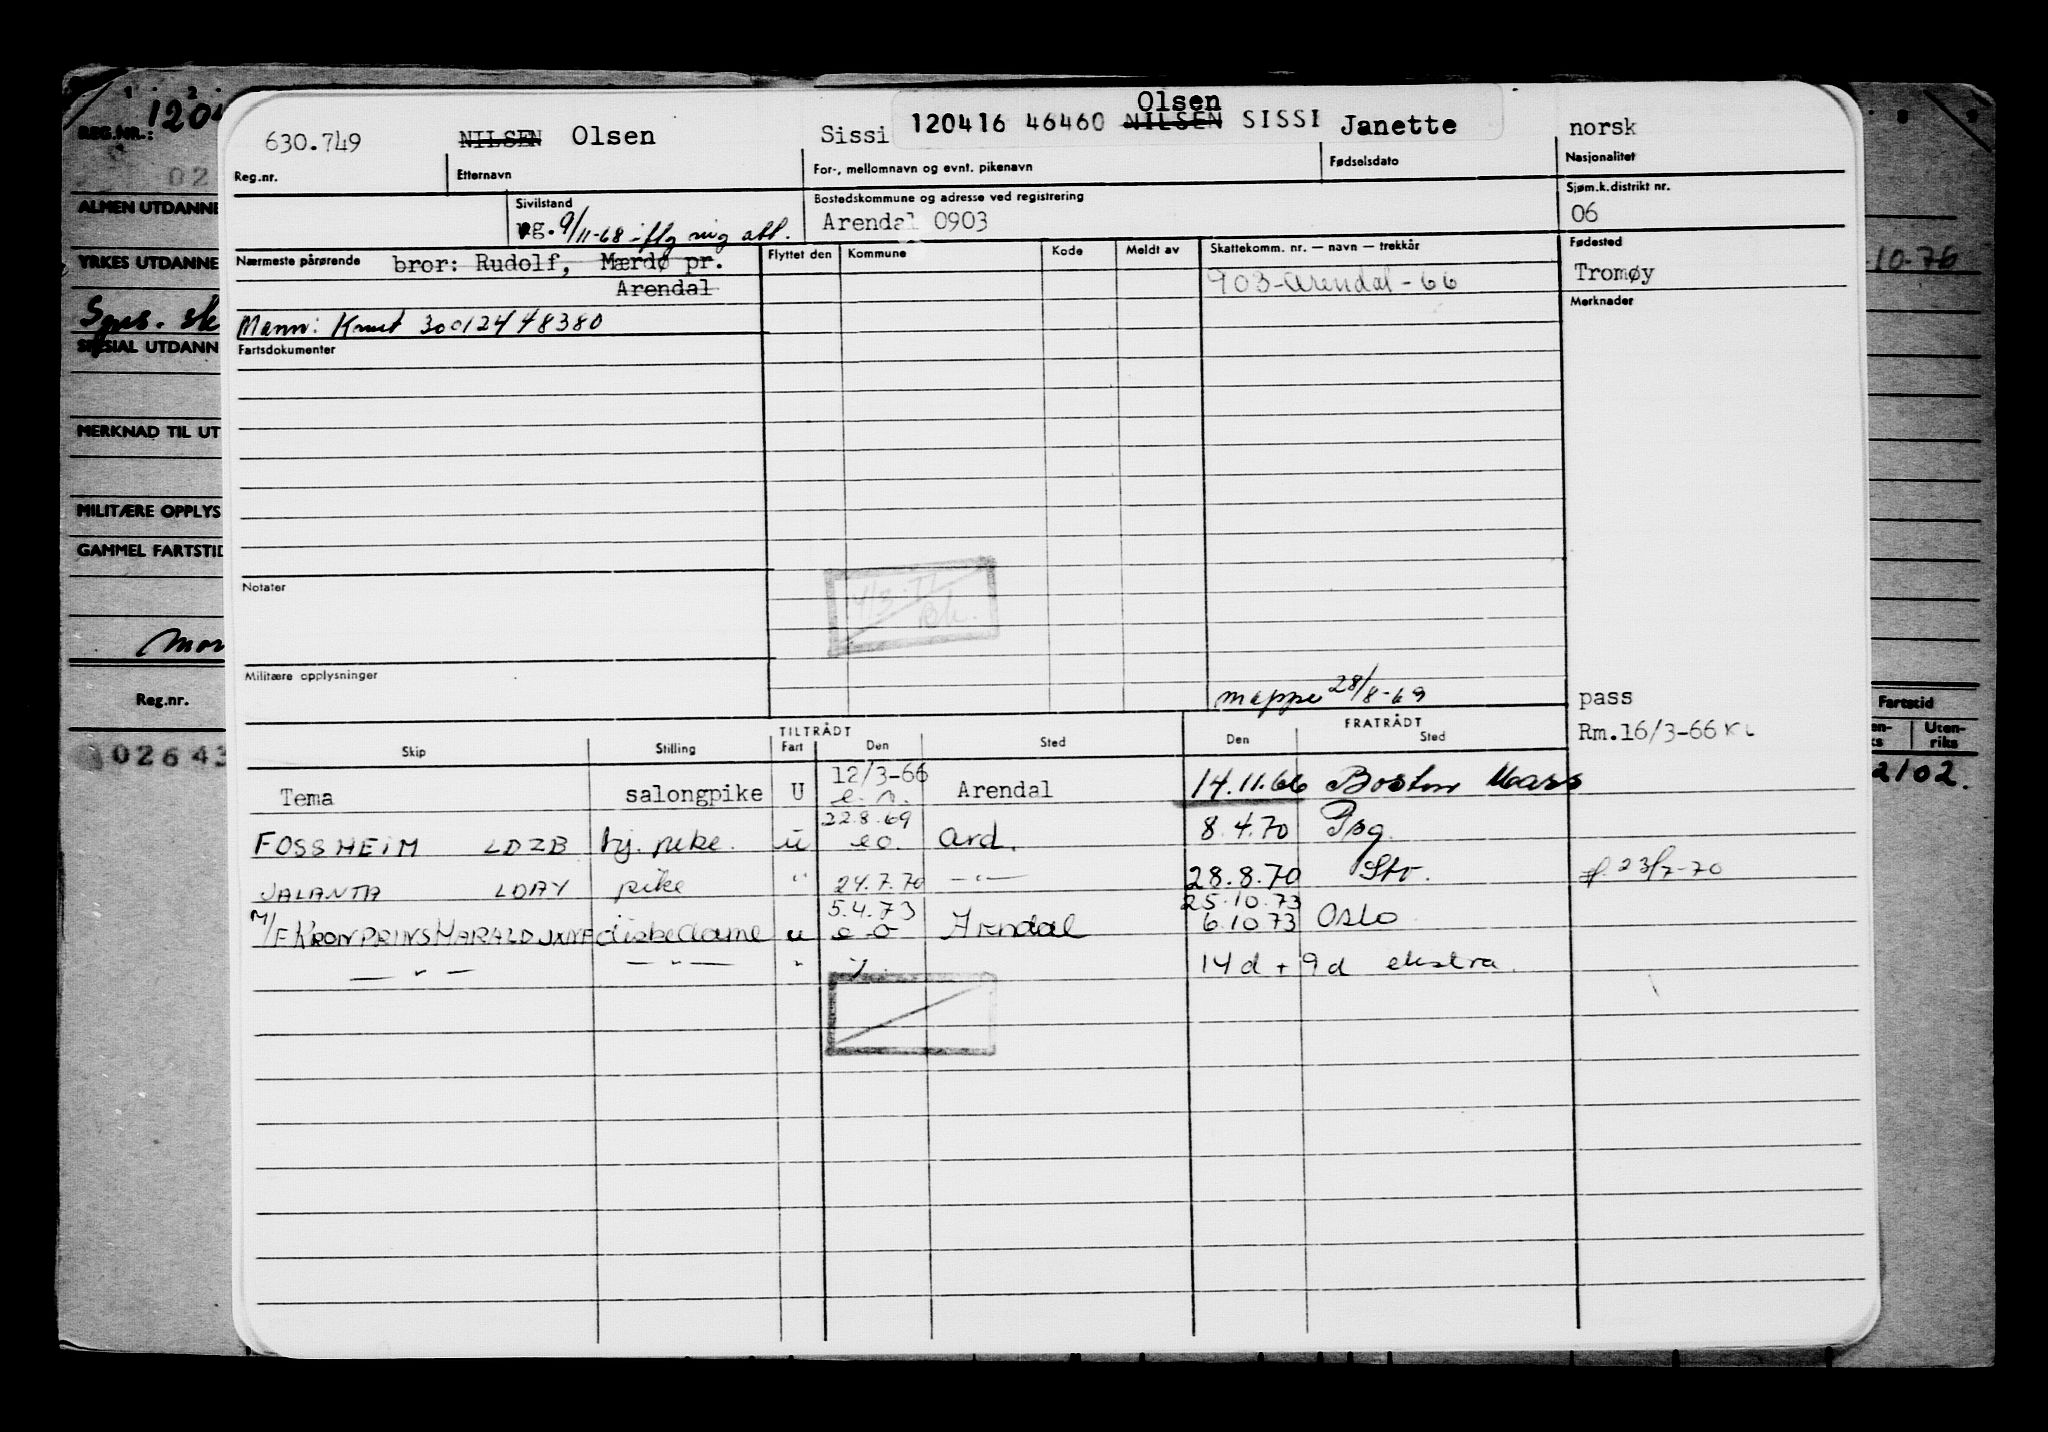 630.749 NILSEN Olsen Sissi 120416 46460 Olsen NILSEN SISSI Janette norsk
Reg.nr. Etternavn For-, mellomnavn og evnt. pikenavn Fødselsdato Nasjonalitet
Sivilstand Bostedskommune og adresse ved registrering Sjøm.k.distrikt nr.
g. 9/11-68 - iflg mig att. Arendal 0903 06
Nærmeste pårørende bror: Rudolf, Mærdø pr. Flyttet den Kommune Kode Meldt av Skattekomm. nr. — navn — trekkår Fødested
Arendal 903-Arendal-66 Tromøy
Mann: Knut 300124 48380 Merknader
Fartsdokumenter
Notater
Militære opplysninger
mappe 28/8-69 pass
Rm.16/3-66
TILTRÅDT FRATRÅDT
Skip Stilling Fart Den Sted Den Sted
Tema salongpike U 12/3-66 Arendal 14.11.66 Boston Mass
e.o.
FOSSHEIM LDZB hj. pike. u 22.8.69 e o. Ard. 8.4.70 Psg.
JALANTA LDAY pike " 24.7.70 —"— 28.8.70 Stv. 23/7-70
M/F KRONPRINS HARALD diskedame u 5.4.73 e o Arendal 25.10.73
6.10 73 Oslo
— " — — " — " 14 d + 9 d ekstra.
REG.NR.:
02
ALMEN UTDANNE
YRKES UTDANNE
SPESIAL UTDANN
MERKNAD TIL UT
MILITÆRE OPPLYS
GAMMEL FARTSTID
Reg.nr.
02643
10-76
Fartstid
Uten-
riks
2102.